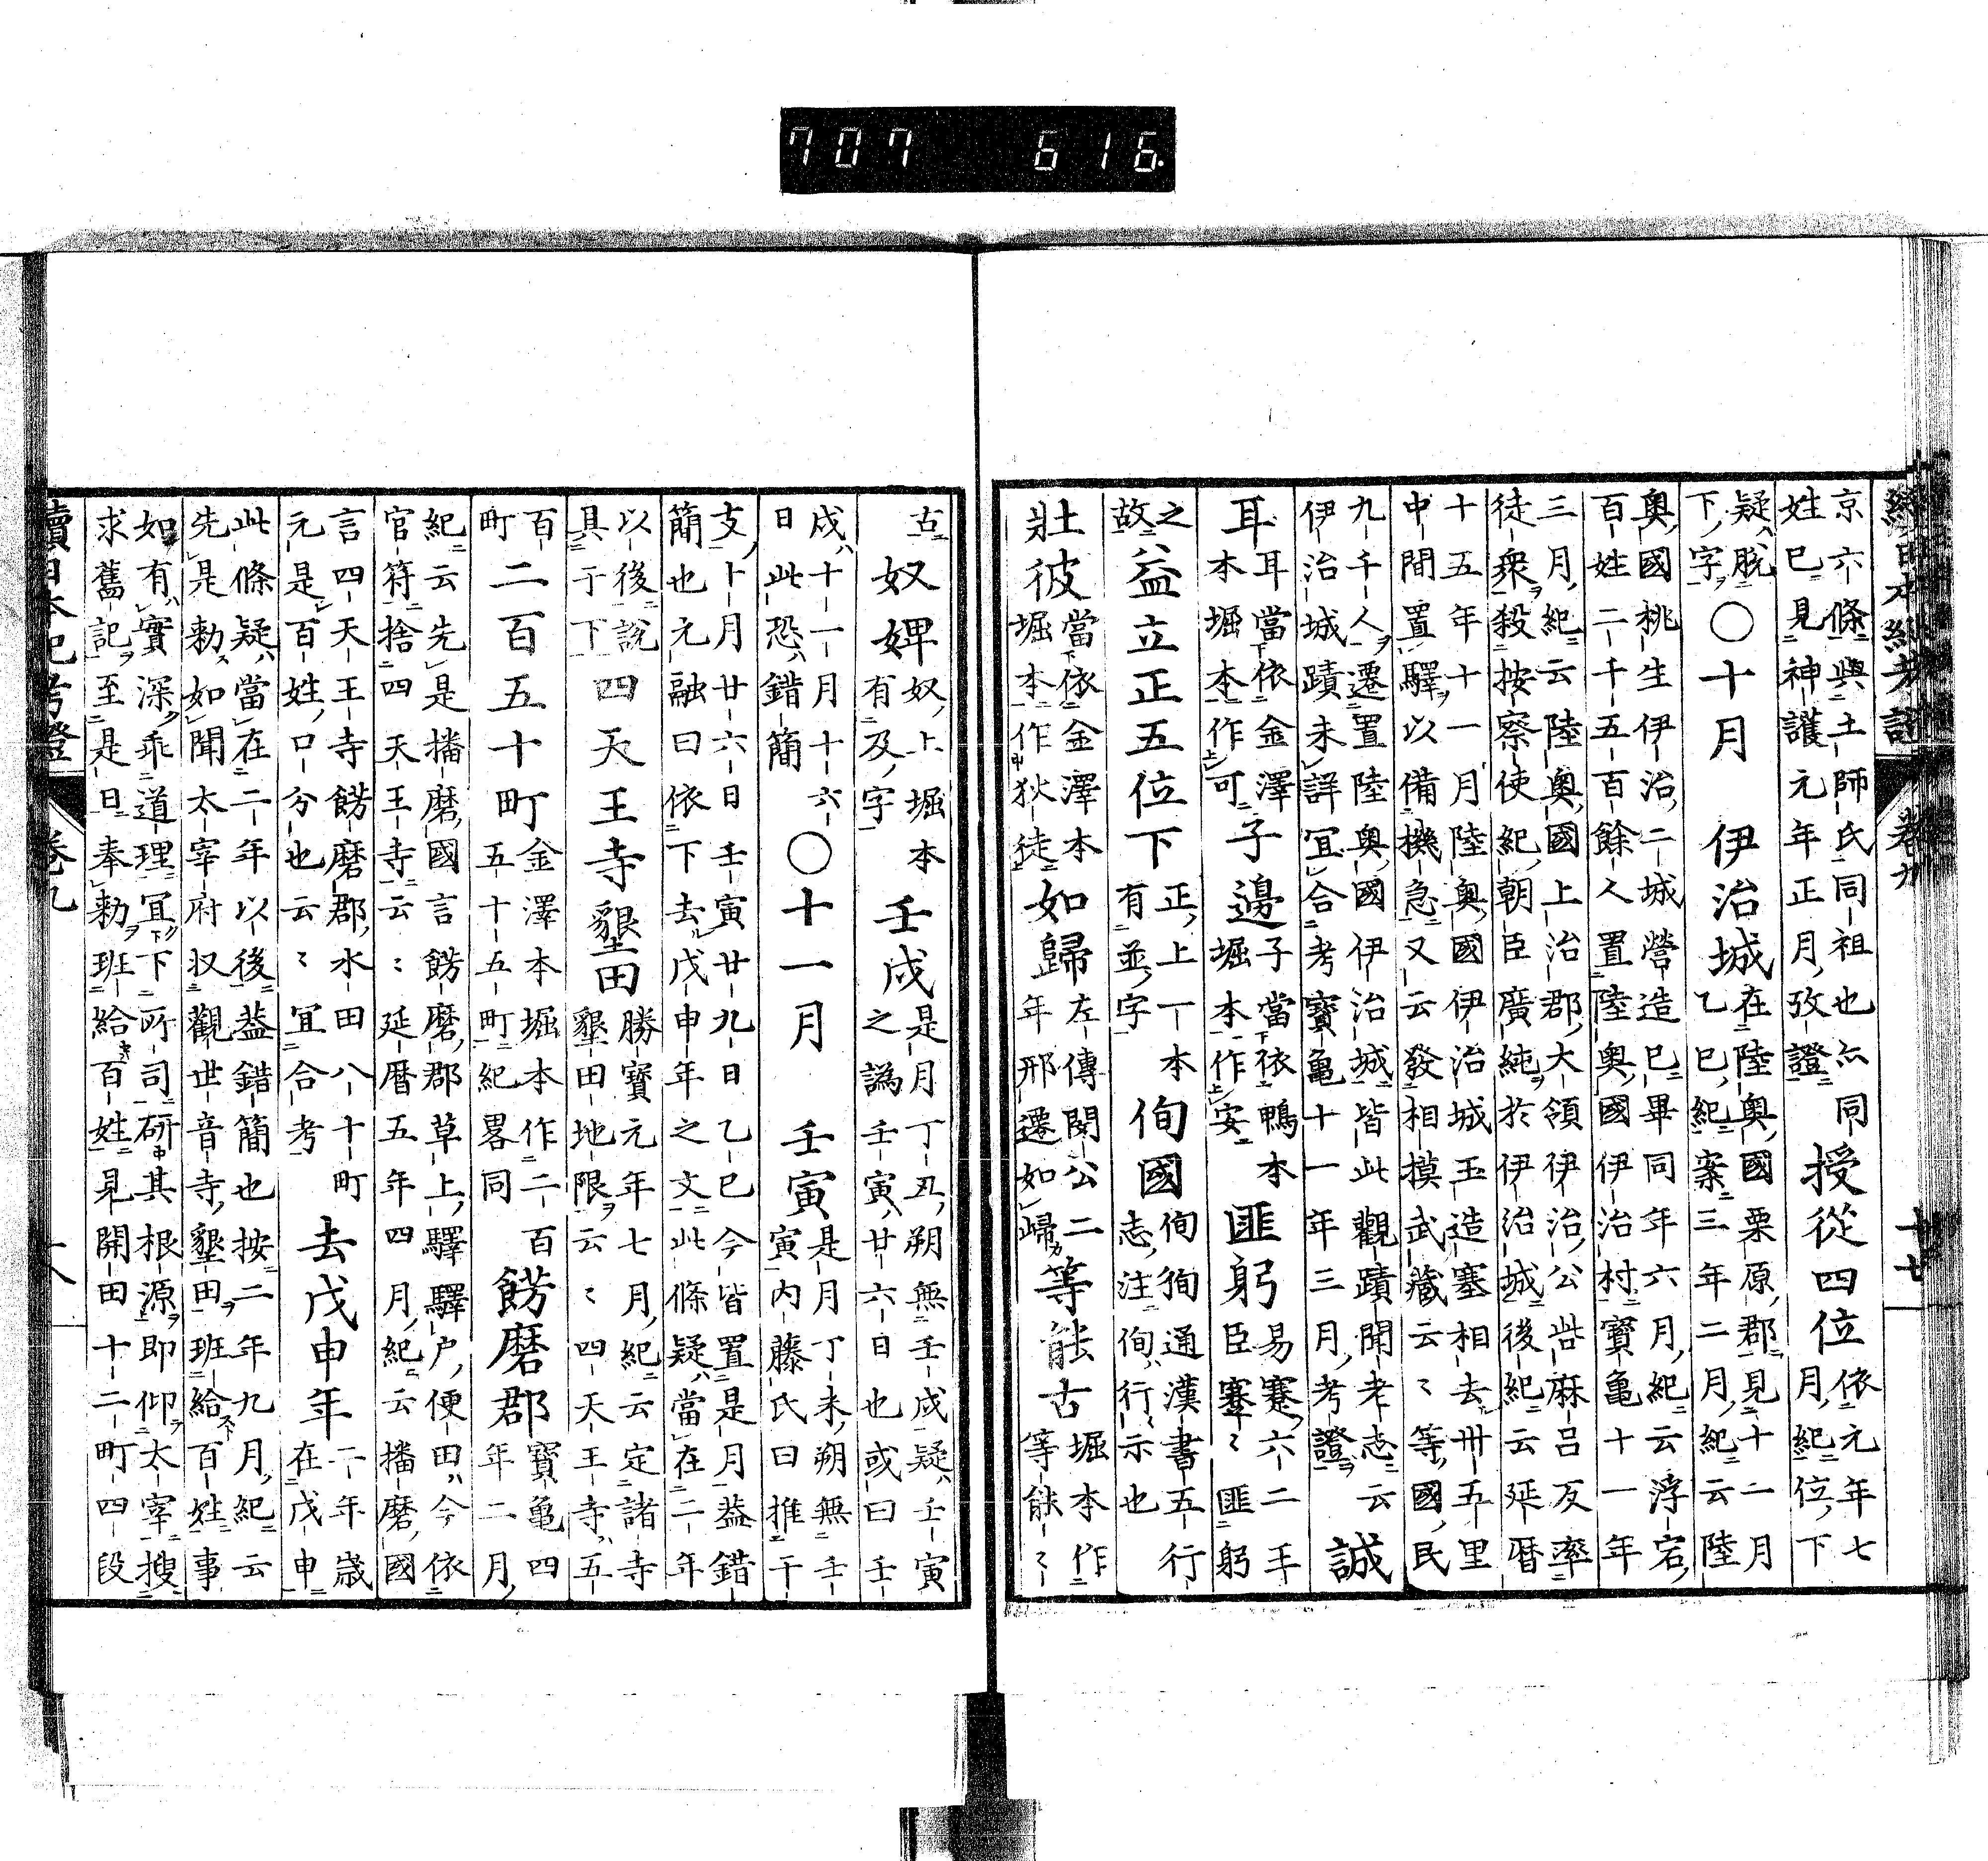 707 616.
續日本紀考證 卷九 十七
京六條與土師氏同祖也亦同
姓巳見神護元年正月攷證
授從四位
依元年七
月紀位下
疑脫
下字
○十月
伊治城
在陸奧國栗原郡見十一月
乙巳紀案三年二月紀云陸
奧國桃生伊治二城營造已畢同年六月紀云浮宕
百姓二千五百餘人置陸奧國伊治村寶龜十一年
三月紀云陸奧國上治郡大領伊治公呰麻呂反率
徒衆殺按察使紀朝臣廣純於伊治城後紀云延曆
十五年十一月陸奧國伊治城玉造塞相去卅五里
中間置驛以備機急又云發相摸武藏云〻等國民
九千人遷置陸奧國伊治城皆此觀蹟聞老志云
伊治城蹟未詳宜合考寶龜十一年三月考證
誠
耳
耳當依金澤
本堀本作可
子邊
子當依鴨本
堀本作安
匪躬
易蹇六二王
臣蹇〻匪躬
之
故
益立正五位下
正上一本
有並字
侚國
侚徇通漢書五行
志注侚行示也
壯彼
當依金澤本
堀本作狄徒
如歸
左傳閔公二
年邢遷如歸
等能古
堀本作
等能〻
古
奴婢
奴上堀本
有及字
壬戌
是月丁丑朔無壬戌疑壬寅
之譌壬寅廿六日也或曰壬
戌十一月十六
日此恐錯簡
○十一月
壬寅
是月丁未朔無壬
寅內藤氏曰推干
支十月廿六日壬寅廿九日乙巳今皆置是月葢錯
簡也元融曰依下去戊申年之文此條疑當在二年
以後說
具于下
四天王寺墾田
勝寶元年七月紀云定諸寺
墾田地限云〻四天王寺五
百
町
二百五十町
金澤本堀本作二百
五十五町紀畧同
餝磨郡
寶龜四
年二月
紀云先是播磨國言餝磨郡草上驛驛戶便田今依
官符捨四天王寺云〻延曆五年四月紀云播磨國
言四天王寺餝磨郡水田八十町
元是百姓口分也云〻宜合考
去戊申年
二年歲
在戊申
此條疑當在二年以後葢錯簡也按二年九月紀云
先是勅如聞太宰府収觀世音寺墾田班給百姓事
如有實深乖道理宜下所司研其根源即仰太宰搜
求舊記至是日奉勅班給百姓見開田十二町四段
續日本紀考證 卷九 十八